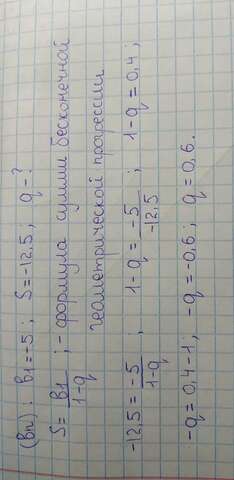 (bn): b1=-5; S=-12,5; q-?
S=b1/1-q; -формула суммы бесконечной
геометрической прогрессии
-12,5=-5/1-q; 1-q=-5/-12,5; 1-q=0,4;
-q=0,4-1; -q=-0,6; q=0,6.